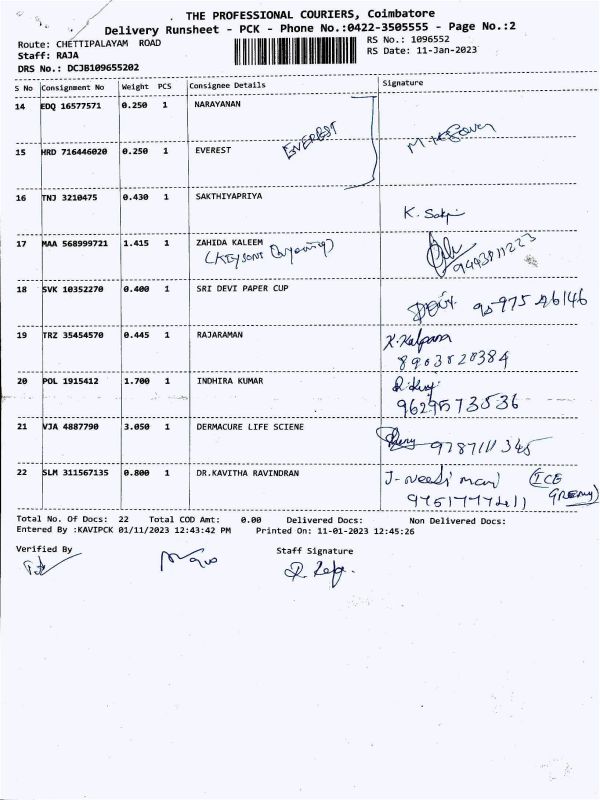 THE PROFESSIONAL COURIERS, Coimbatore
Delivery Runsheet - PCK - Phone No.:0422-3505555 - Page No.:2
Route: CHETTIPALAYAM ROAD
RS No.: 1096552
Staff: RAJA
RS Date: 11-Jan-2023
DRS No.: DCJB109655202
S No Consignment No Weight PCS Consignee Details Signature
14 EDQ 16577571 0.250 1 NARAYANAN
EVEREST
15 HRD 716446020 0.250 1 EVEREST
16 TNJ 3210475 0.430 1 SAKTHIYAPRIYA
K. Sakpi
17 MAA 568999721 1.415 1 ZAHIDA KALEEM
9443811223
18 SVK 10352270 0.400 1 SRI DEVI PAPER CUP
19 TRZ 35454570 0.445 1 RAJARAMAN K. Kalpana
8903820384
20 POL 1915412 1.700 1 INDHIRA KUMAR
9629573536
21 VJA 4887790 3.050 1 DERMACURE LIFE SCIENE
9787111345
22 SLM 311567135 0.800 1 DR.KAVITHA RAVINDRAN (ICE
9751777411
Total No. Of Docs: 22 Total COD Amt: 0.00 Delivered Docs: Non Delivered Docs:
Entered By :KAVIPCK 01/11/2023 12:43:42 PM Printed On: 11-01-2023 12:45:26
Verified By Staff Signature